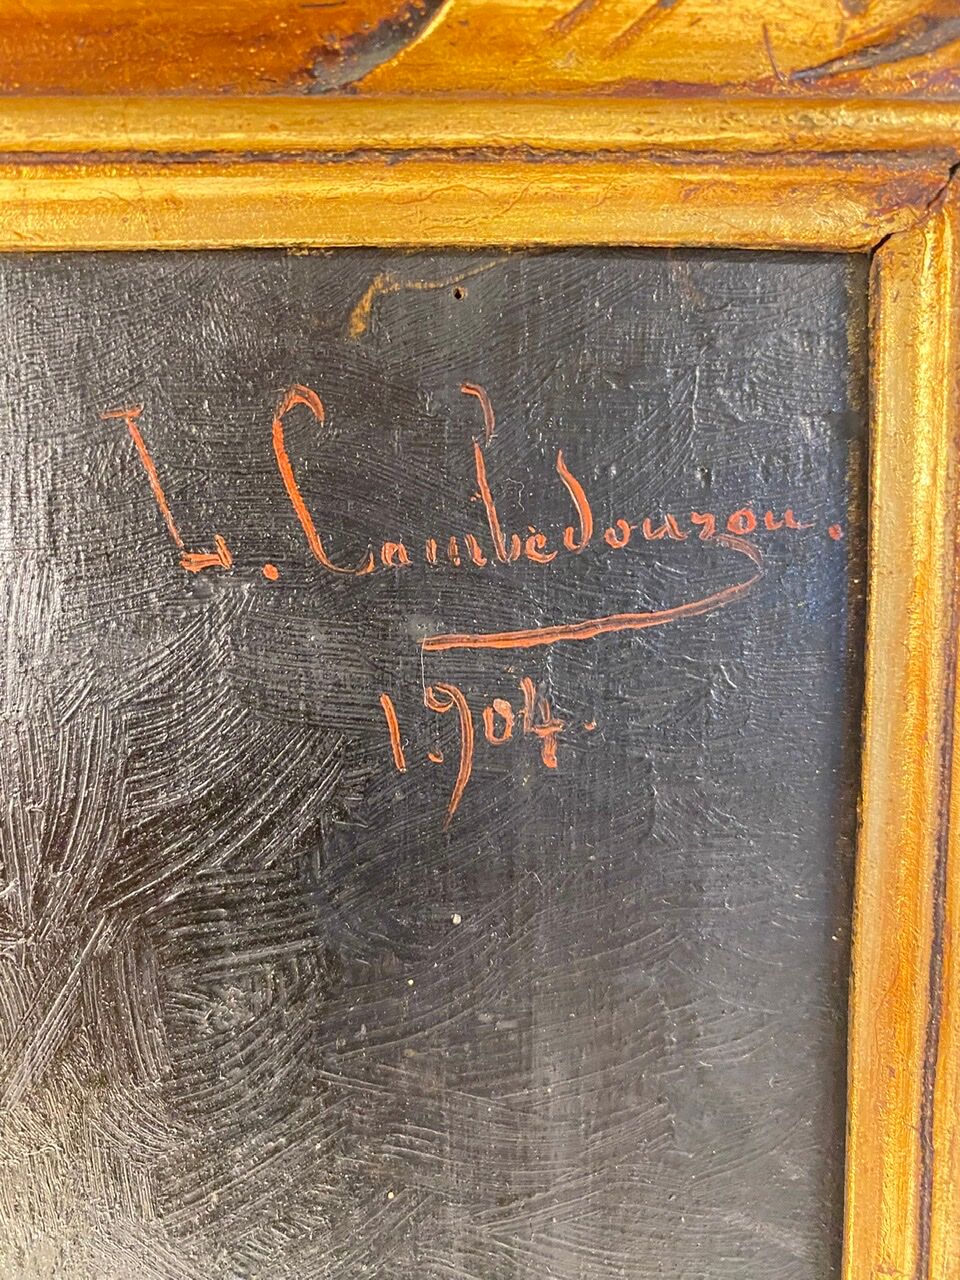 L. Cambèdouzou.
1904.